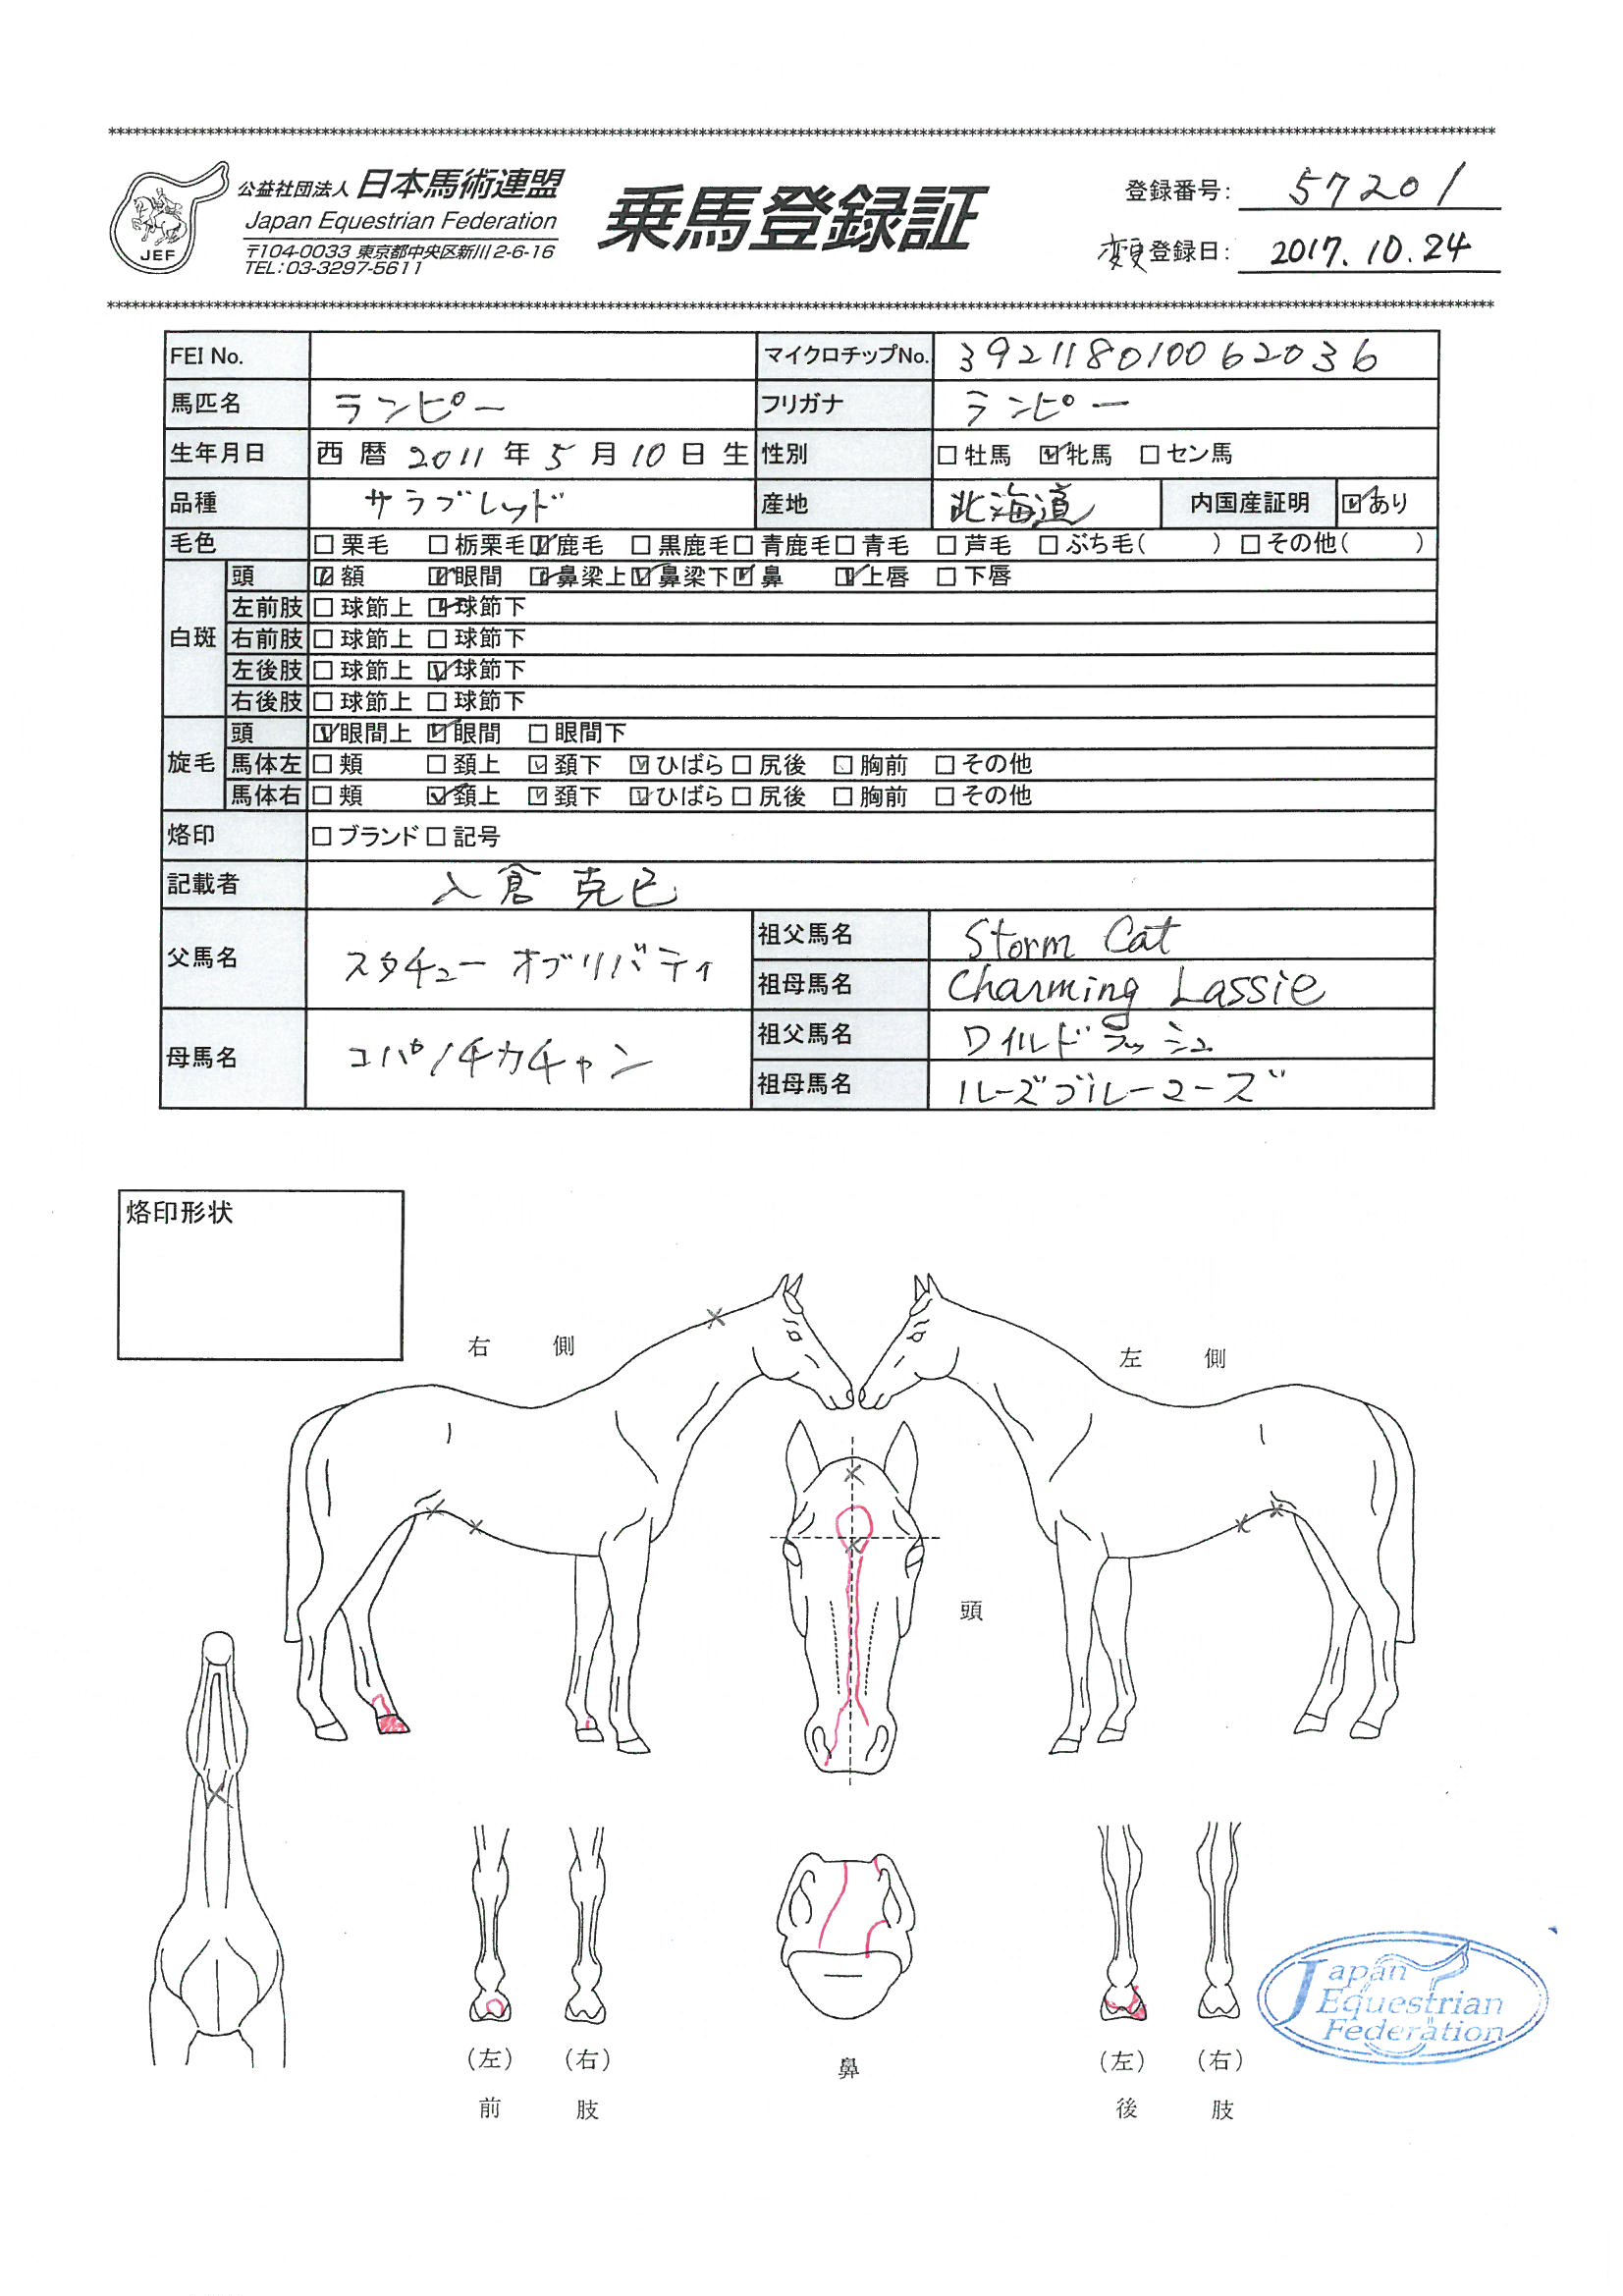 公益社団法人 日本馬術連盟
Japan Equestrian Federation
〒104-0033 東京都中央区新川2-6-16
TEL:03-3297-5611
JEF
乗馬登録証
登録番号: 57201
変更登録日: 2017.10.24
FEI No. マイクロチップNo. 392118010062036
馬匹名 ランピー フリガナ ランピー
生年月日 西暦 2011 年 5 月 10 日生 性別 □牡馬 ☑牝馬 □セン馬
品種 サラブレッド 産地 北海道 内国産証明 ☑あり
毛色 □栗毛 □栃栗毛 ☑鹿毛 □黒鹿毛 □青鹿毛 □青毛 □芦毛 □ぶち毛( ) □その他( )
白斑 頭 ☑額 ☑眼間 ☑鼻梁上 ☑鼻梁下 ☑鼻 ☑上唇 □下唇
左前肢 □球節上 ☑球節下
右前肢 □球節上 □球節下
左後肢 □球節上 ☑球節下
右後肢 □球節上 □球節下
旋毛 頭 ☑眼間上 ☑眼間 □眼間下
馬体左 □頬 □頚上 ☑頚下 ☑ひばら □尻後 □胸前 □その他
馬体右 □頬 ☑頚上 ☑頚下 ☑ひばら □尻後 □胸前 □その他
烙印 □ブランド □記号
記載者 入倉 克己
父馬名 スタチューオブリバティ 祖父馬名 Storm Cat
祖母馬名 Charming Lassie
母馬名 コパノチカチャン 祖父馬名 ワイルドラッシュ
祖母馬名 ルーズブルーマーズ
烙印形状
右側
左側
頭
(左) (右)
前肢
鼻
(左) (右)
後肢
Japan
Equestrian
Federation